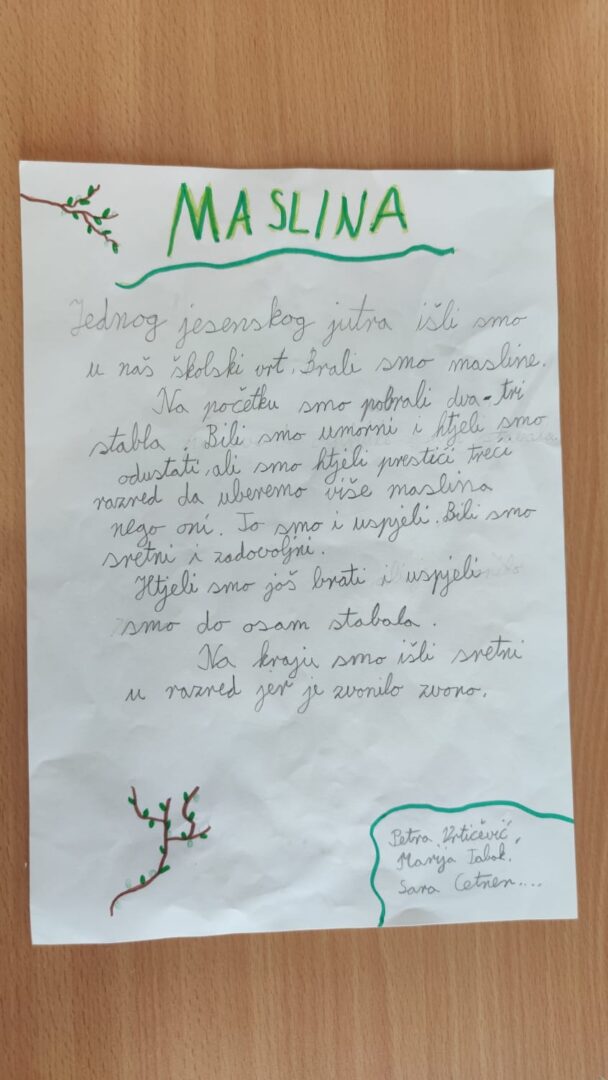 MASLINA
Jednog jesenskog jutra išli smo
u naš školski vrt. Brali smo masline.
Na početku smo pobrali dva-tri
stabla. Bili smo umorni i htjeli smo
odustati, ali smo htjeli prestići treći
razred da uberemo više maslina
nego oni. To smo i uspjeli. Bili smo
sretni i zadovoljni.
Htjeli smo još brati i uspjeli
smo do osam stabala.
Na kraju smo išli sretni
u razred jer je zvonilo zvono.
Petra Vrtičević,
Marija Tabak.
Sara